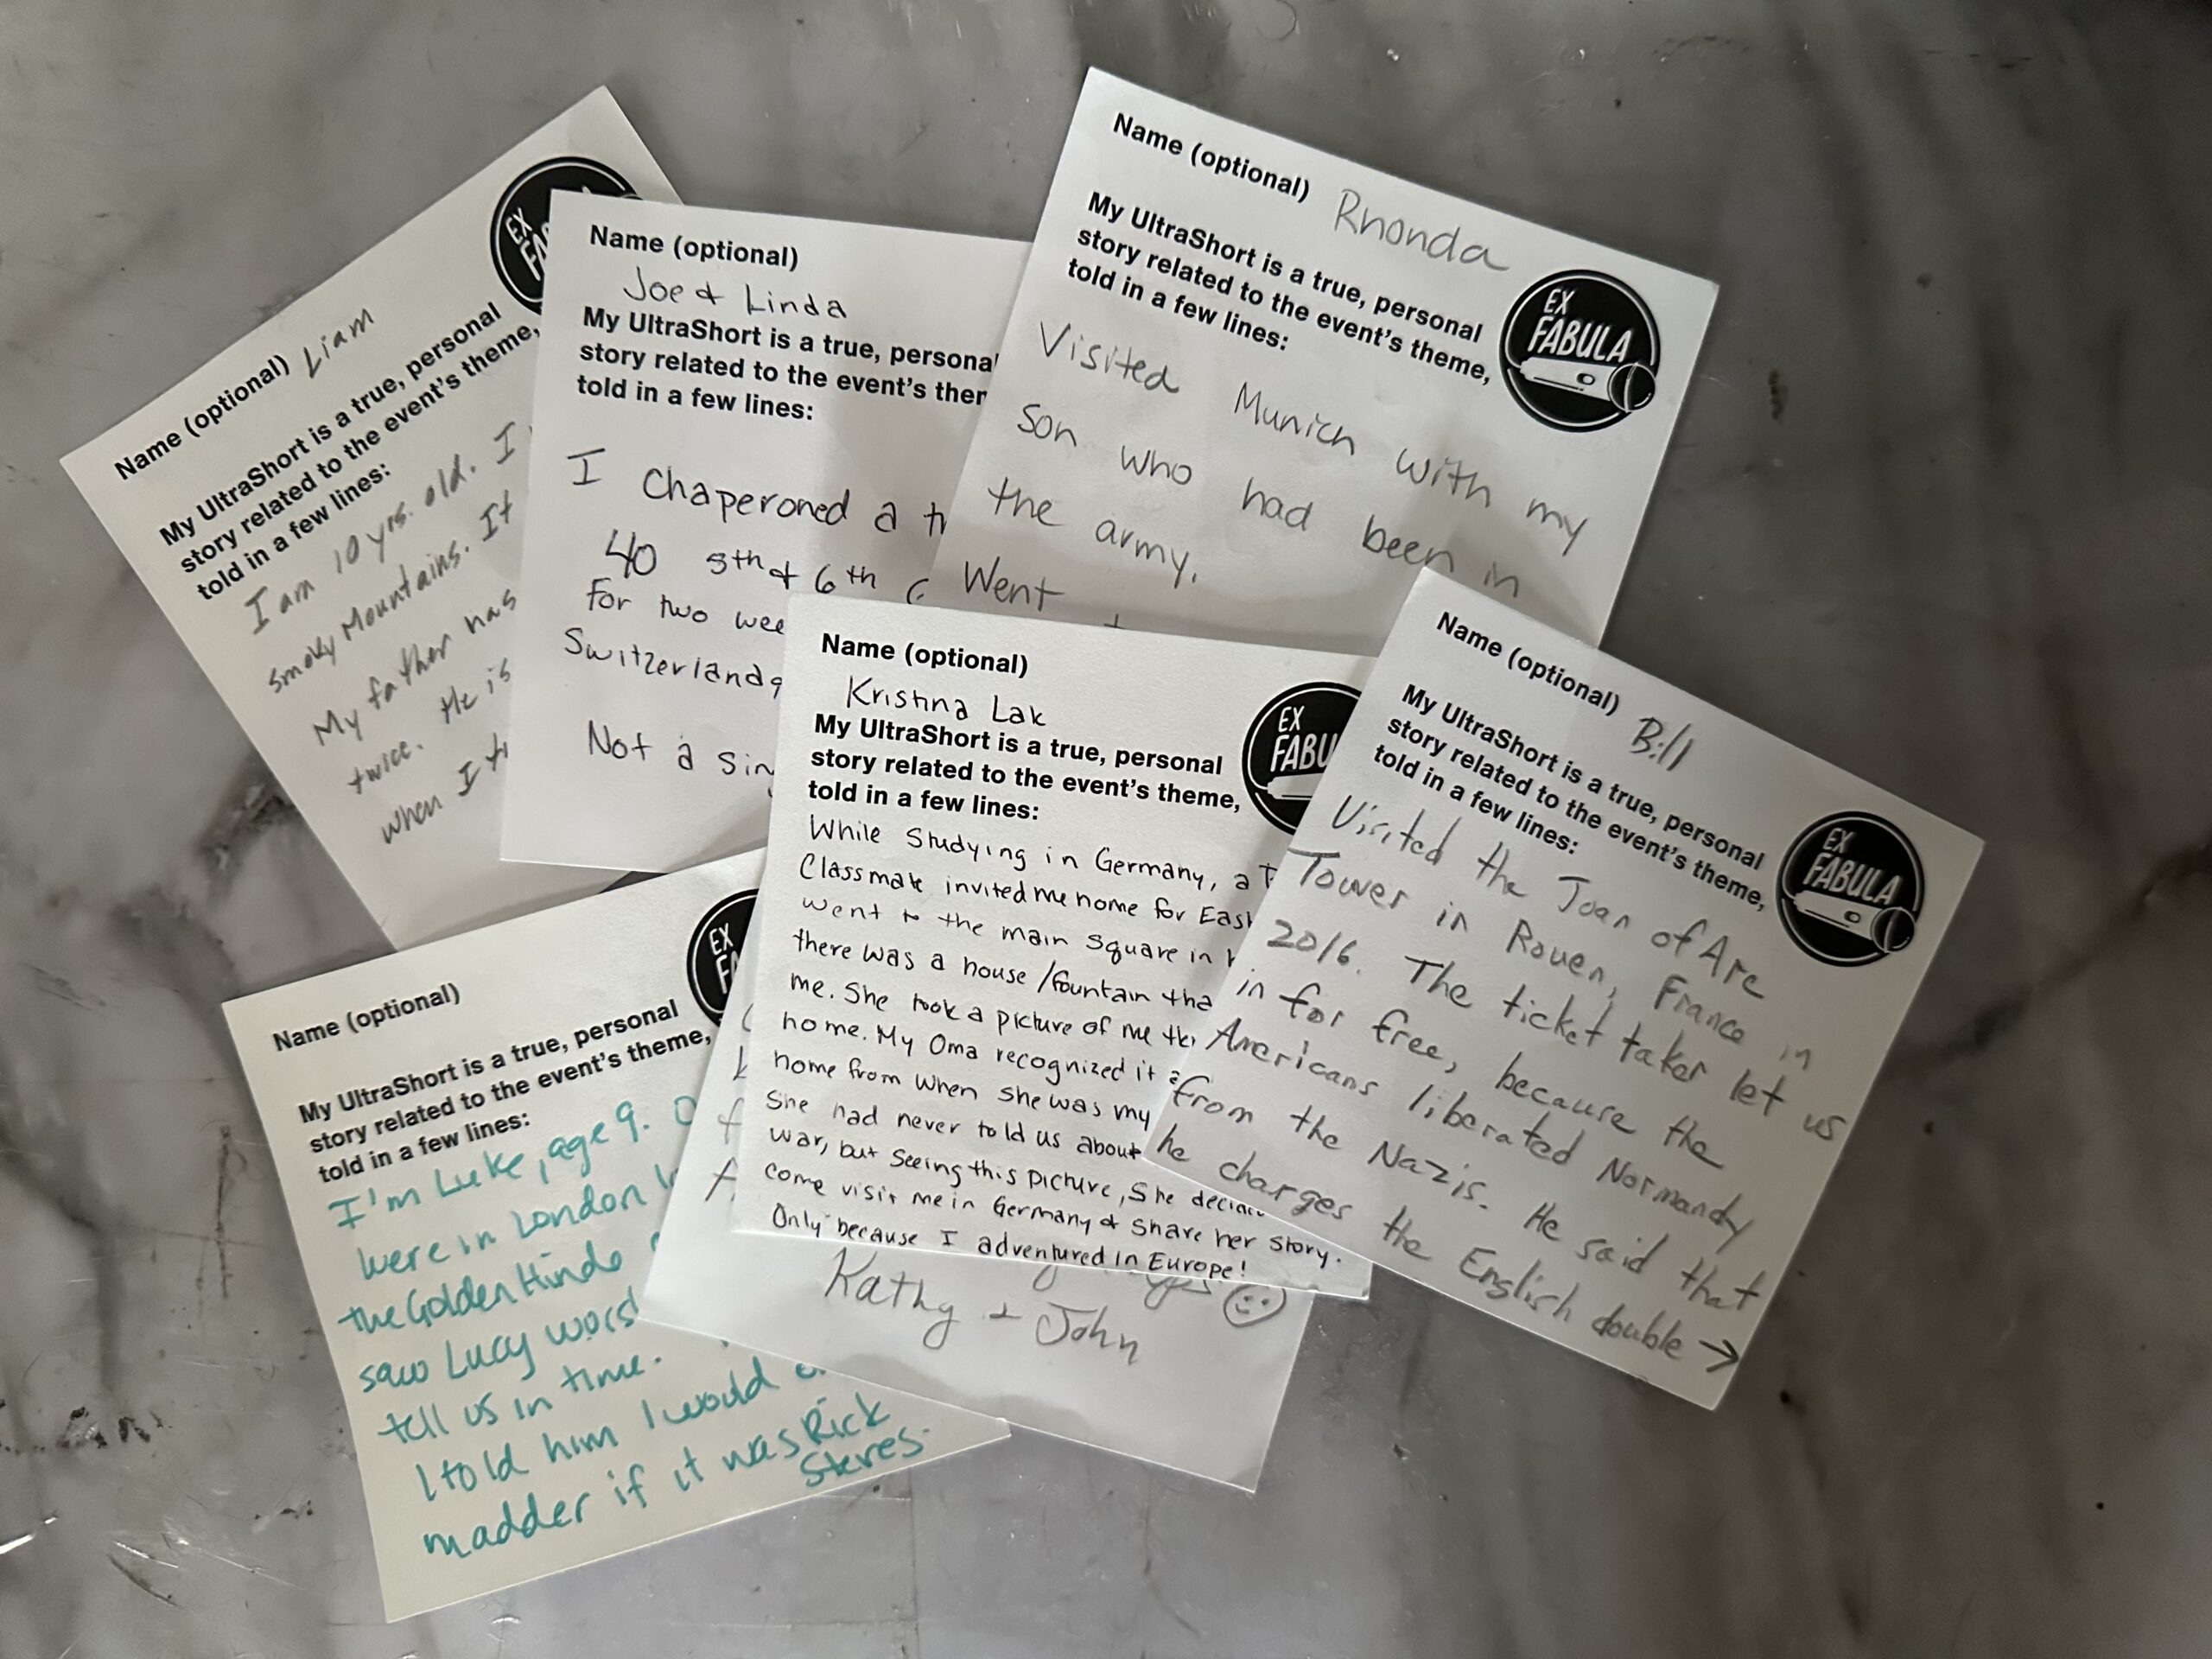 Name (optional) Liam
My UltraShort is a true, personal
story related to the event's theme,
told in a few lines:
I am 10 yrs. old. I
Smoky Mountains. It
My father has
twice. He is
when I
EX
Name (optional)
Joe & Linda
My UltraShort is a true, persona
story related to the event's
told in a few lines:
I Chaperoned a
40 5th & 6th
For two
Switzerland
Not a
Name (optional) Rhonda
My UltraShort is a true, personal
story related to the event's theme,
told in a few lines:
EX
FABULA
Visited Munich with my
Son who had been in
the army.
Went
Name (optional)
Kristina Lak
My UltraShort is a true, personal
story related to the event's theme,
told in a few lines:
EX
FABU
While Studying in Germany, a
Classmate invited me home for
went to the main square in
there was a house/fountain
me. She took a picture of me
home. My Oma recognized it
home from when she was my
She had never told us about
war, but seeing this picture, She
come visit me in Germany & share her story.
Only because I adventured in Europe!
Name (optional) Bill
My UltraShort is a true, personal
story related to the event's theme,
told in a few lines:
EX
FABULA
Visited the Joan of Arc
Tower in Rouen, France in
2016. The ticket taker let us
in for free, because the
Americans liberated Normandy
from the Nazis. He said that
he charges the English double →
Name (optional)
My UltraShort is a true, personal
story related to the event's theme,
told in a few lines:
EX
FA
I'm Luke, age 9.
were in London
the Golden Hinde
saw Lucy
tell us in time.
I told him I would
madder if it was Rick
Steves.
Kathy + John